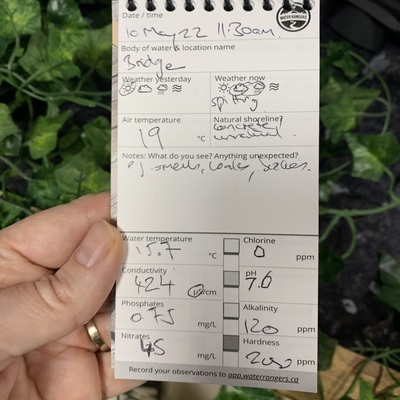 WATER RANGERS
Date / time
10 May 22 11:30am.
Body of water & location name
Bridge
Weather yesterday Weather now
spitting
Air temperature Natural shoreline?
19 °C concrete
unnatural.
Notes: What do you see? Anything unexpected?
e.g. smells,
Water temperature Chlorine
15.7 °C 0 ppm
Conductivity pH
424 µS/cm 7.6
Phosphates Alkalinity
0.75 mg/L 120 ppm
Nitrates Hardness
45 mg/L ppm
Record your observations to app.waterrangers.ca